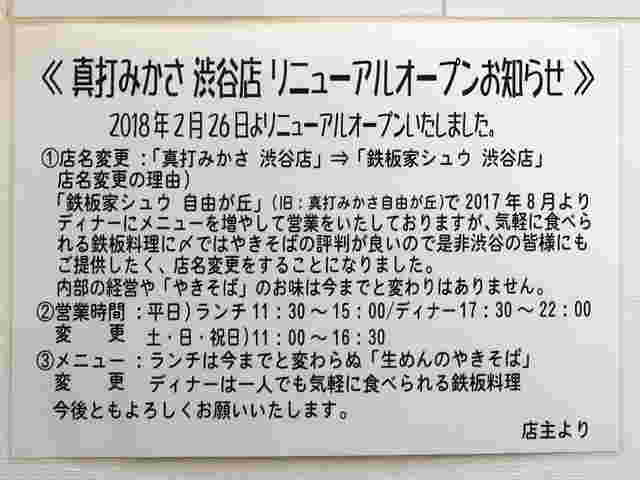 《 真打みかさ 渋谷店 リニューアルオープンお知らせ 》
2018年2月26日よりリニューアルオープンいたしました。
①店名変更:「真打みかさ 渋谷店」⇒「鉄板家シュウ 渋谷店」
店名変更の理由)
「鉄板家シュウ 自由が丘」(旧:真打みかさ自由が丘)で2017年8月より
ディナーにメニューを増やして営業をいたしておりますが、気軽に食べら
れる鉄板料理に〆ではやきそばの評判が良いので是非渋谷の皆様にも
ご提供したく、店名変更をすることになりました。
内部の経営や「やきそば」のお味は今までと変わりはありません。
②営業時間:平日)ランチ11:30〜15:00/ディナー17:30〜22:00
変 更 土・日・祝日)11:00〜16:30
③メニュー:ランチは今までと変わらぬ「生めんのやきそば」
変 更 ディナーは一人でも気軽に食べられる鉄板料理
今後ともよろしくお願いいたします。
店主より